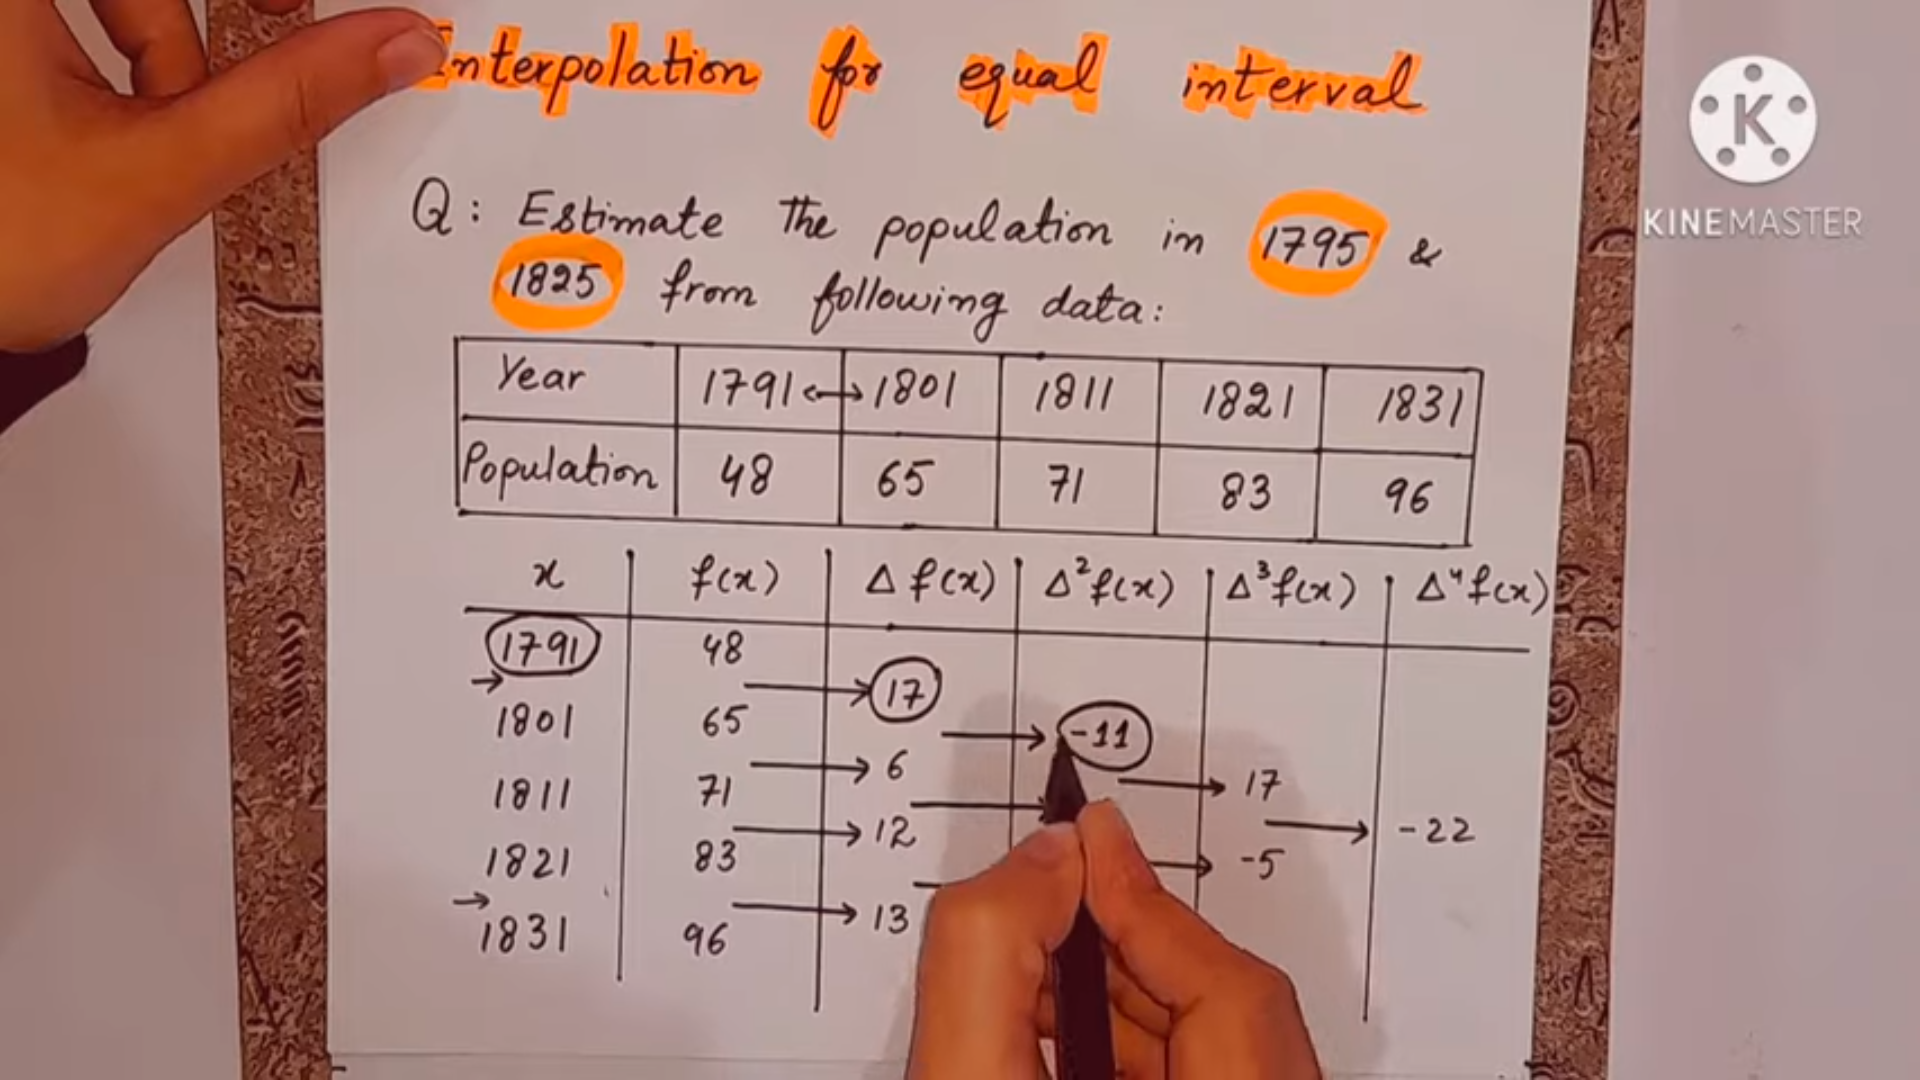 Interpolation for equal interval
KINEMASTER
Q: Estimate the population in 1795 &
1825 from following data:
Year 1791 ↔ 1801 1811 1821 1831
Population 48 65 71 83 96
x f(x) Δf(x) Δ²f(x) Δ³f(x) Δ⁴f(x)
1791 48
→ → 17
1801 65 → -11
→ 6 → 17
1811 71 → → -22
→ 12 → -5
1821 83
→ → 13
1831 96